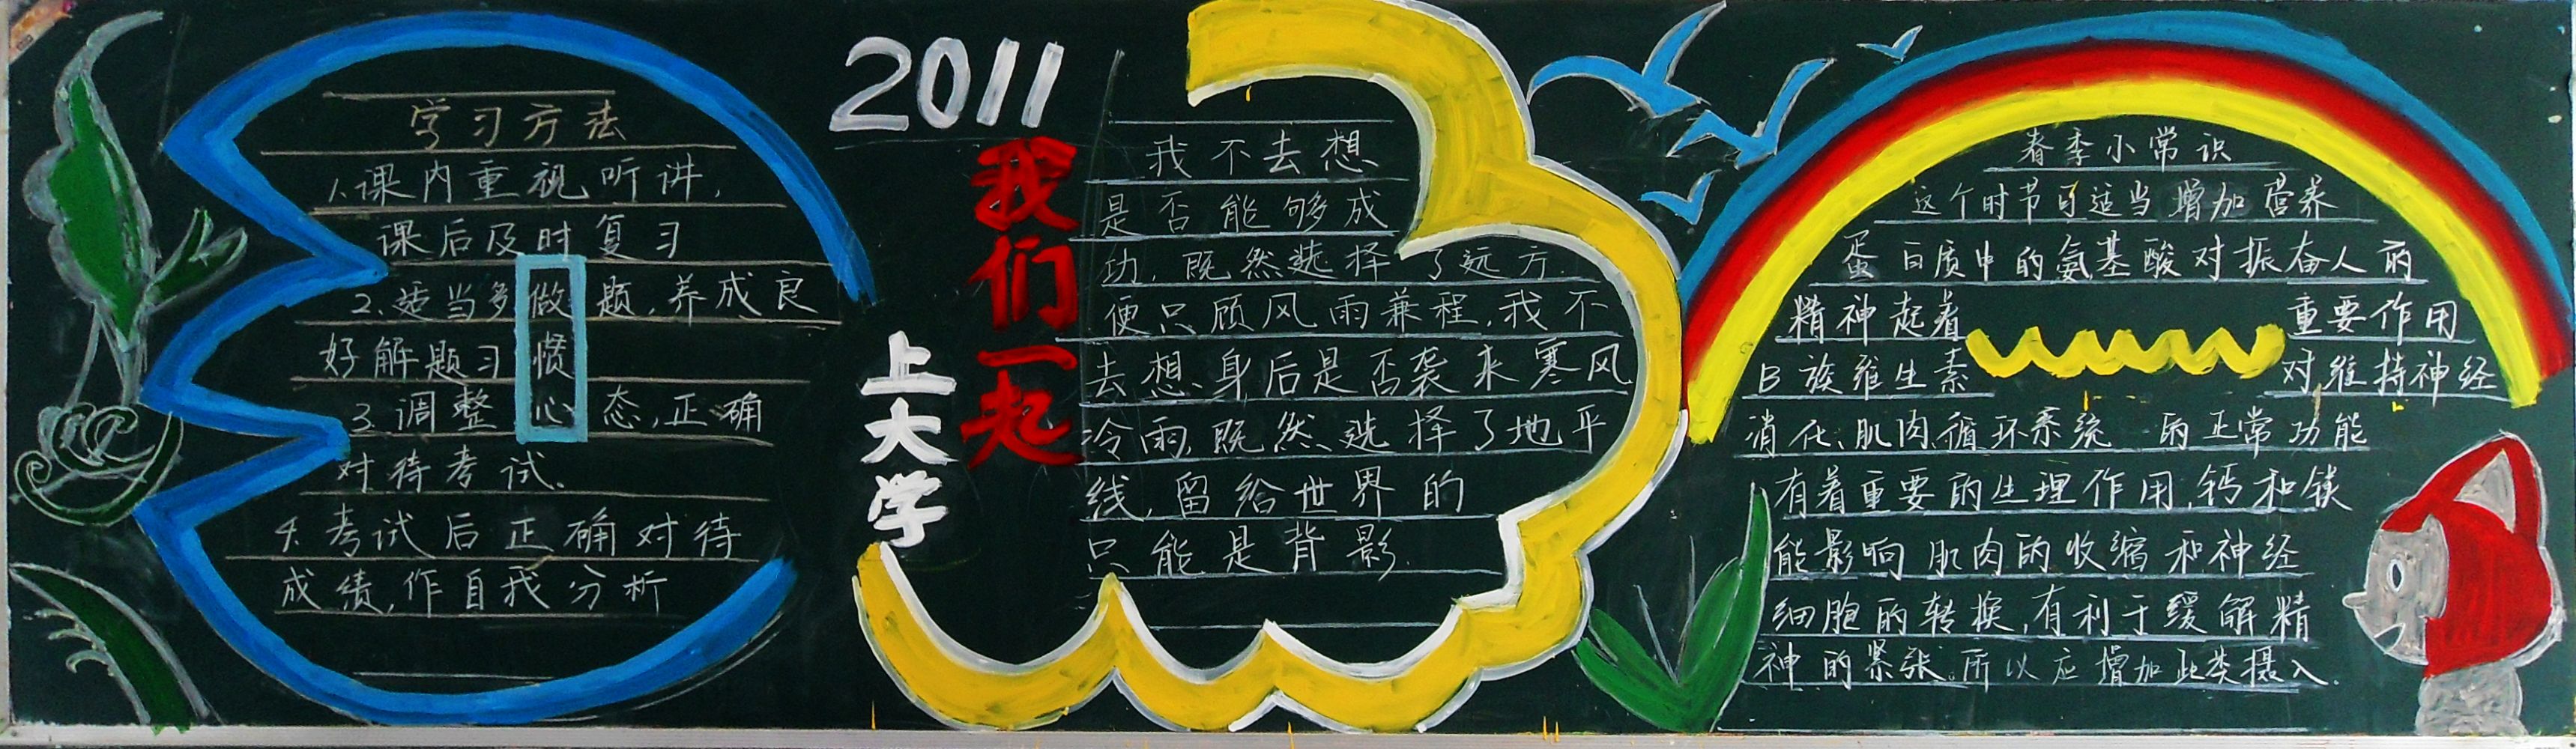 学习方法
1.课内重视听讲,
课后及时复习
2.适当多做题,养成良
好解题习惯
3.调整心态,正确
对待考试.
4.考试后正确对待
成绩,作自我分析
2011
我们一起
上大学
我不去想
是否能够成
功,既然选择了远方.
便只顾风雨兼程,我不
去想身后是否袭来寒风
冷雨,既然选择了地平
线,留给世界的
只能是背影.
春季小常识
这个时节可适当增加营养
蛋白质中的氨基酸对振奋人的
精神起着重要作用
B族维生素对维持神经
消化、肌肉、循环系统的正常功能
有着重要的生理作用,钙和镁
能影响肌肉的收缩和神经
细胞的转换,有利于缓解精
神的紧张。所以应增加此类摄入.